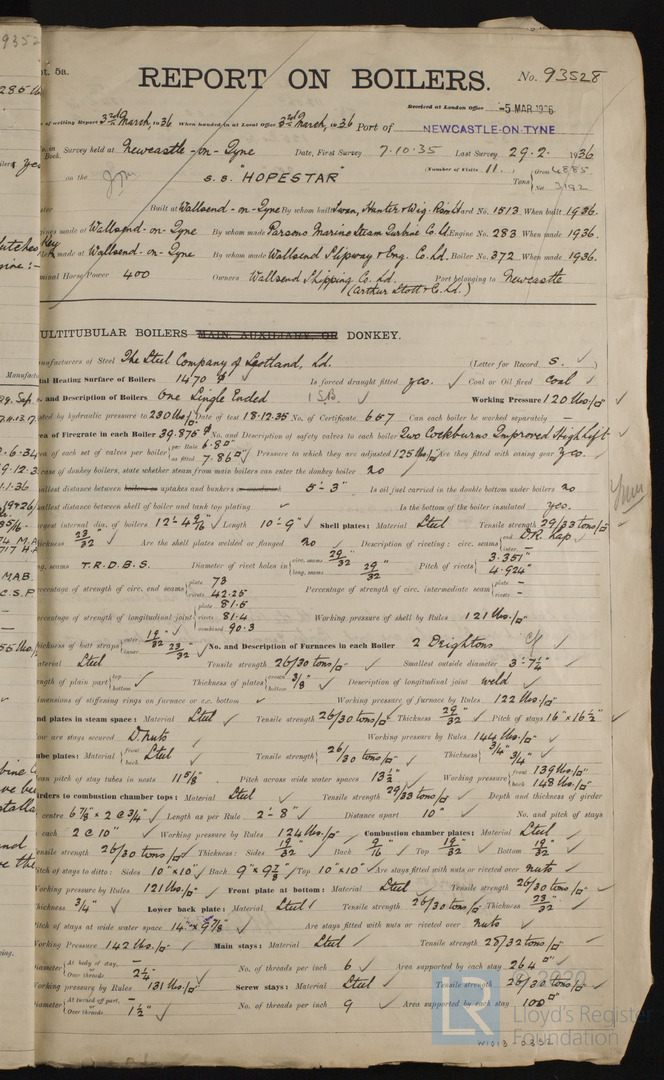 pt. 5a.
REPORT ON BOILERS.
No. 93528
Received at London Office -5 MAR 1936
of writing Report 3rd March, 1936 When handed in at Local Office 3rd March, 1936 Port of NEWCASTLE-ON-TYNE
Survey held at Newcastle-on-Tyne Date, First Survey 7.10.35 Last Survey 29.2.1936
Book.
on the S.S. "HOPESTAR" (Number of Visits 11.) Tons Gross 4885 Net 3192
Built at Wallsend-on-Tyne By whom built Swan, Hunter & Wig. Richd Yard No. 1513 When built 1936.
made at Wallsend-on-Tyne By whom made Parsons Marine Steam Turbine Co. Ld Engine No. 283 When made 1936.
made at Wallsend-on-Tyne By whom made Wallsend Slipway & Eng. Co. Ld. Boiler No. 372 When made 1936.
Horse Power 400 Owners Wallsend Shipping Co. Ld. Port belonging to Newcastle
(Arthur Stott & Co. Ld.)
ULTITUBULAR BOILERS MAIN, AUXILIARY, OR DONKEY.
nufacturers of Steel The Steel Company of Scotland, Ld. (Letter for Record S. )
tal Heating Surface of Boilers 1470 Is forced draught fitted yes. Coal or Oil fired coal
. and Description of Boilers One Single Ended 1 S.B. Working Pressure 120 lbs/
ted by hydraulic pressure to 230 lbs/ Date of test 18.12.35 No. of Certificate 657 Can each boiler be worked separately —
rea of Firegrate in each Boiler 39.875 No. and Description of safety valves to each boiler Two Cockburns Improved High Lift
ea of each set of valves per boiler per Rule 6.80 as fitted 7.86 Pressure to which they are adjusted 125 lbs/ Are they fitted with easing gear yes.
case of donkey boilers, state whether steam from main boilers can enter the donkey boiler no
allest distance between boilers or uptakes and bunkers or woodwork 5'-3" Is oil fuel carried in the double bottom under boilers no
allest distance between shell of boiler and tank top plating Is the bottom of the boiler insulated yes.
rgest internal dia. of boilers 12'-4 5/16" Length 10'-9" Shell plates: Material Steel Tensile strength 29/33 tons/
hickness 23/32 Are the shell plates welded or flanged no Description of riveting: circ. seams end D.R. Lap inter. —
ng. seams T.R.D.B.S. Diameter of rivet holes in circ. seams 29/32 long. seams 29/32 Pitch of rivets 3.351" 4.924"
ercentage of strength of circ. end seams plate 73 rivets 42.25 Percentage of strength of circ. intermediate seam plate — rivets —
ercentage of strength of longitudinal joint plate 81.6 rivets 81.4 combined 90.3 Working pressure of shell by Rules 121 lbs/
hickness of butt straps outer 19/32 inner 23/32 No. and Description of Furnaces in each Boiler 2 Deightons
aterial Steel Tensile strength 26/30 tons/ Smallest outside diameter 3'-7 1/4"
ength of plain part top bottom Thickness of plates crown bottom 3/8" Description of longitudinal joint weld
imensions of stiffening rings on furnace or c.c. bottom Working pressure of furnace by Rules 122 lbs/
nd plates in steam space: Material Steel Tensile strength 26/30 tons/ Thickness 29/32 Pitch of stays 16" x 16 1/2"
ow are stays secured D. nuts Working pressure by Rules 144 lbs/
ube plates: Material front back Steel Tensile strength 26/30 tons/ Thickness 3/4" 3/4"
ean pitch of stay tubes in nests 11 5/8" Pitch across wide water spaces 13 1/2" Working pressure front 139 lbs/ back 148 lbs/
irders to combustion chamber tops: Material Steel Tensile strength 29/33 tons/ Depth and thickness of girder
centre 6 7/8" x 2 @ 3/4" Length as per Rule 2'-8" Distance apart 10" No. and pitch of stays
each 2 @ 10" Working pressure by Rules 124 lbs/ Combustion chamber plates: Material Steel
ensile strength 26/30 tons/ Thickness: Sides 19/32 Back 9/16" Top 19/32 Bottom 19/32
itch of stays to ditto: Sides 10" x 10" Back 9" x 9 7/8" Top 10" x 10" Are stays fitted with nuts or riveted over nuts
orking pressure by Rules 121 lbs/ Front plate at bottom: Material Steel Tensile strength 26/30 tons/
hickness 3/4" Lower back plate: Material Steel Tensile strength 26/30 tons/ Thickness 23/32"
itch of stays at wide water space 14" x 9 7/8" Are stays fitted with nuts or riveted over nuts
orking Pressure 142 lbs/ Main stays: Material Steel Tensile strength 28/32 tons/
iameter At body of stay, or Over threads 2 1/4" No. of threads per inch 6 Area supported by each stay 264
orking pressure by Rules 131 lbs/ Screw stays: Material Steel Tensile strength 26/30 tons/
iameter At turned off part, or Over threads 1 1/2" No. of threads per inch 9 Area supported by each stay 100
© 2020
LR
Lloyd's Register
Foundation
W1013-0332